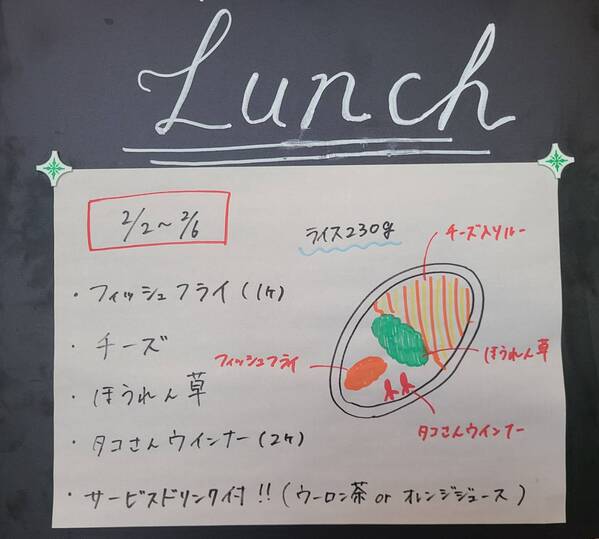 Lunch
2/2～2/6
ライス230g
チーズ入りルー
・フィッシュフライ(1ヶ)
・チーズ
フィッシュフライ
ほうれん草
・ほうれん草
タコさんウインナー
・タコさんウインナー(2ヶ)
・サービスドリンク付!!(ウーロン茶 or オレンジジュース)